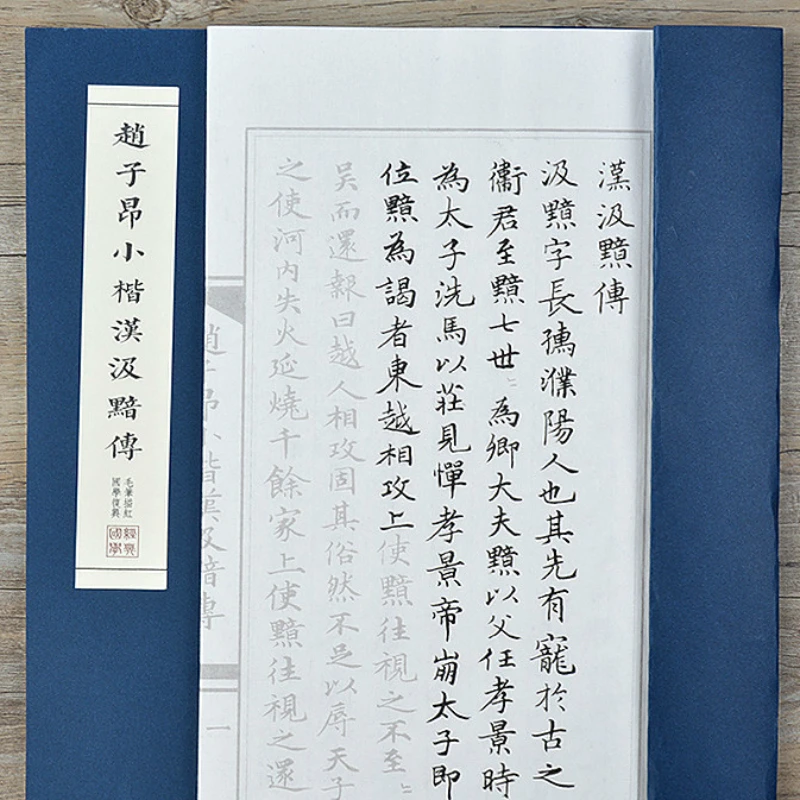 趙子昂小楷漢汲黯傳
毛筆描紅
國學復興
經典
國學
漢汲黯傳
汲黯字長孺濮陽人也其先有寵於古之
衛君至黯七世〻為卿大夫黯以父任孝景時
為太子洗馬以莊見憚孝景帝崩太子即
位黯為謁者東越相攻上使黯往視之不至〻
吳而還報曰越人相攻固其俗然不足以辱天子
之使河內失火延燒千餘家上使黯往視之還
趙子昂小楷漢汲黯傳
一